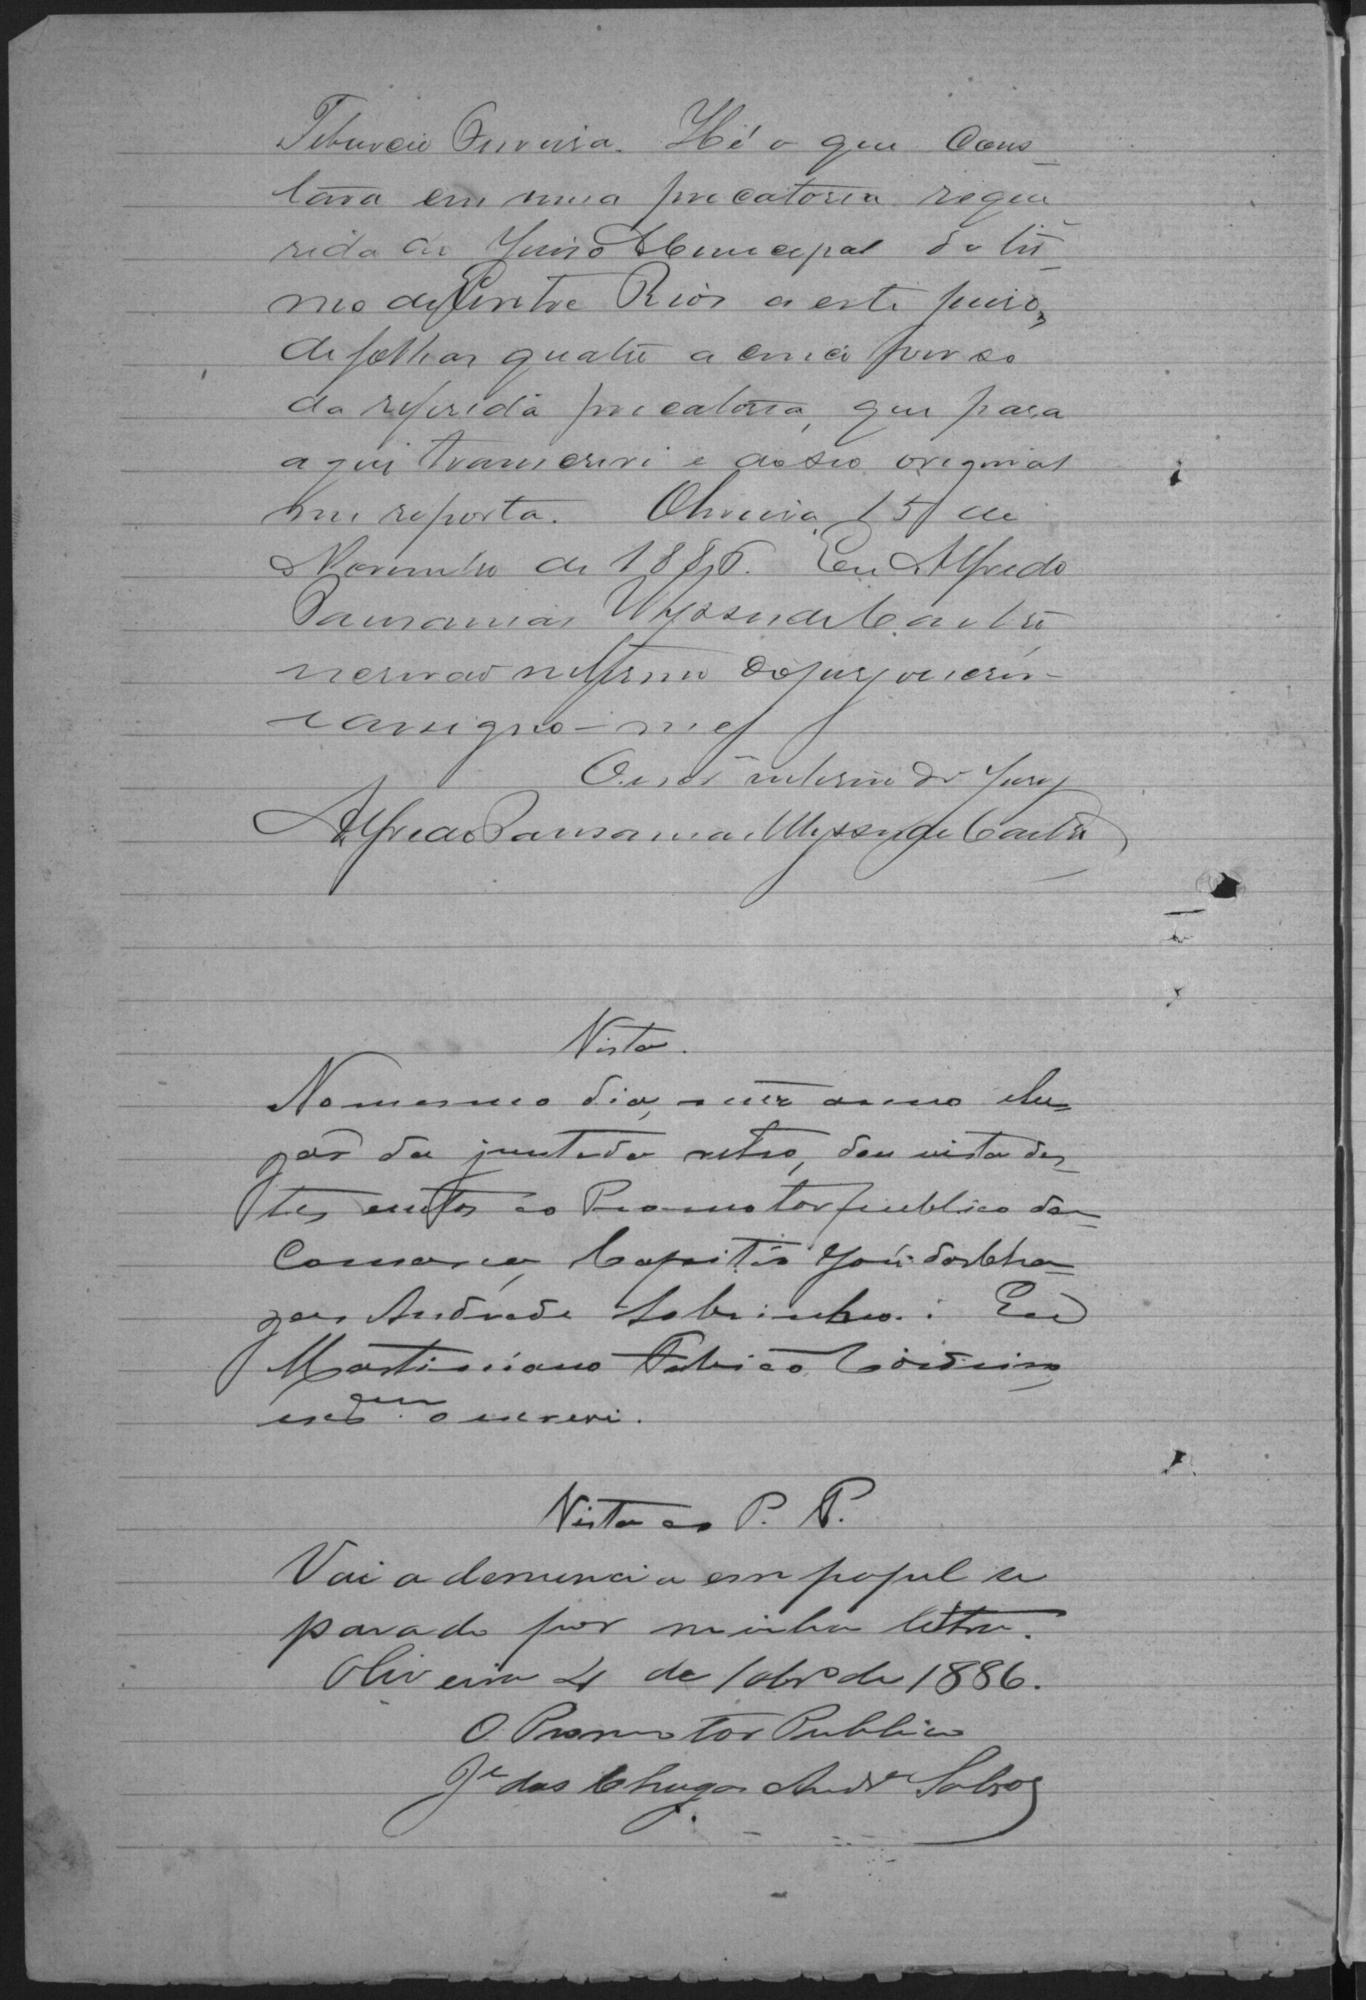 Tiburcio Ferreira. Hé o que Cons-
tava em uma precatoria reque
rida do Juiso Municipal do ter-
mo de Entre Rios a este juiso,
de folhas quatro a cinco verso
da referida precatoria, que para
aqui transcrevi e ao seo original
me reporto. Oliveira, 15 de
Novembro de 1886. Eu Alfredo
Pausanias Ulysses de Castro
escrivão interino do jury o escrevi
e assigno-me
O escrão interino do Jury
Alfredo Pausanias Ulysses de Castro
Vista.
No mesmo dia, mez anno e lu-
gar da juntada retro, dou vista des-
tes autos ao Promotor publico da
Comarca, Capitão José das Cha-
gas Andrade Sobrinho. Eu
Martiniano Fabricio Cordeiro
escrão que o escrevi.
Vista ao P. P.
Vai a denuncia em papel se
parado por minha letra.
Oliveira 4 de 10bro de 1886.
O Promotor Publico
Je das Chagas Andre Sobro